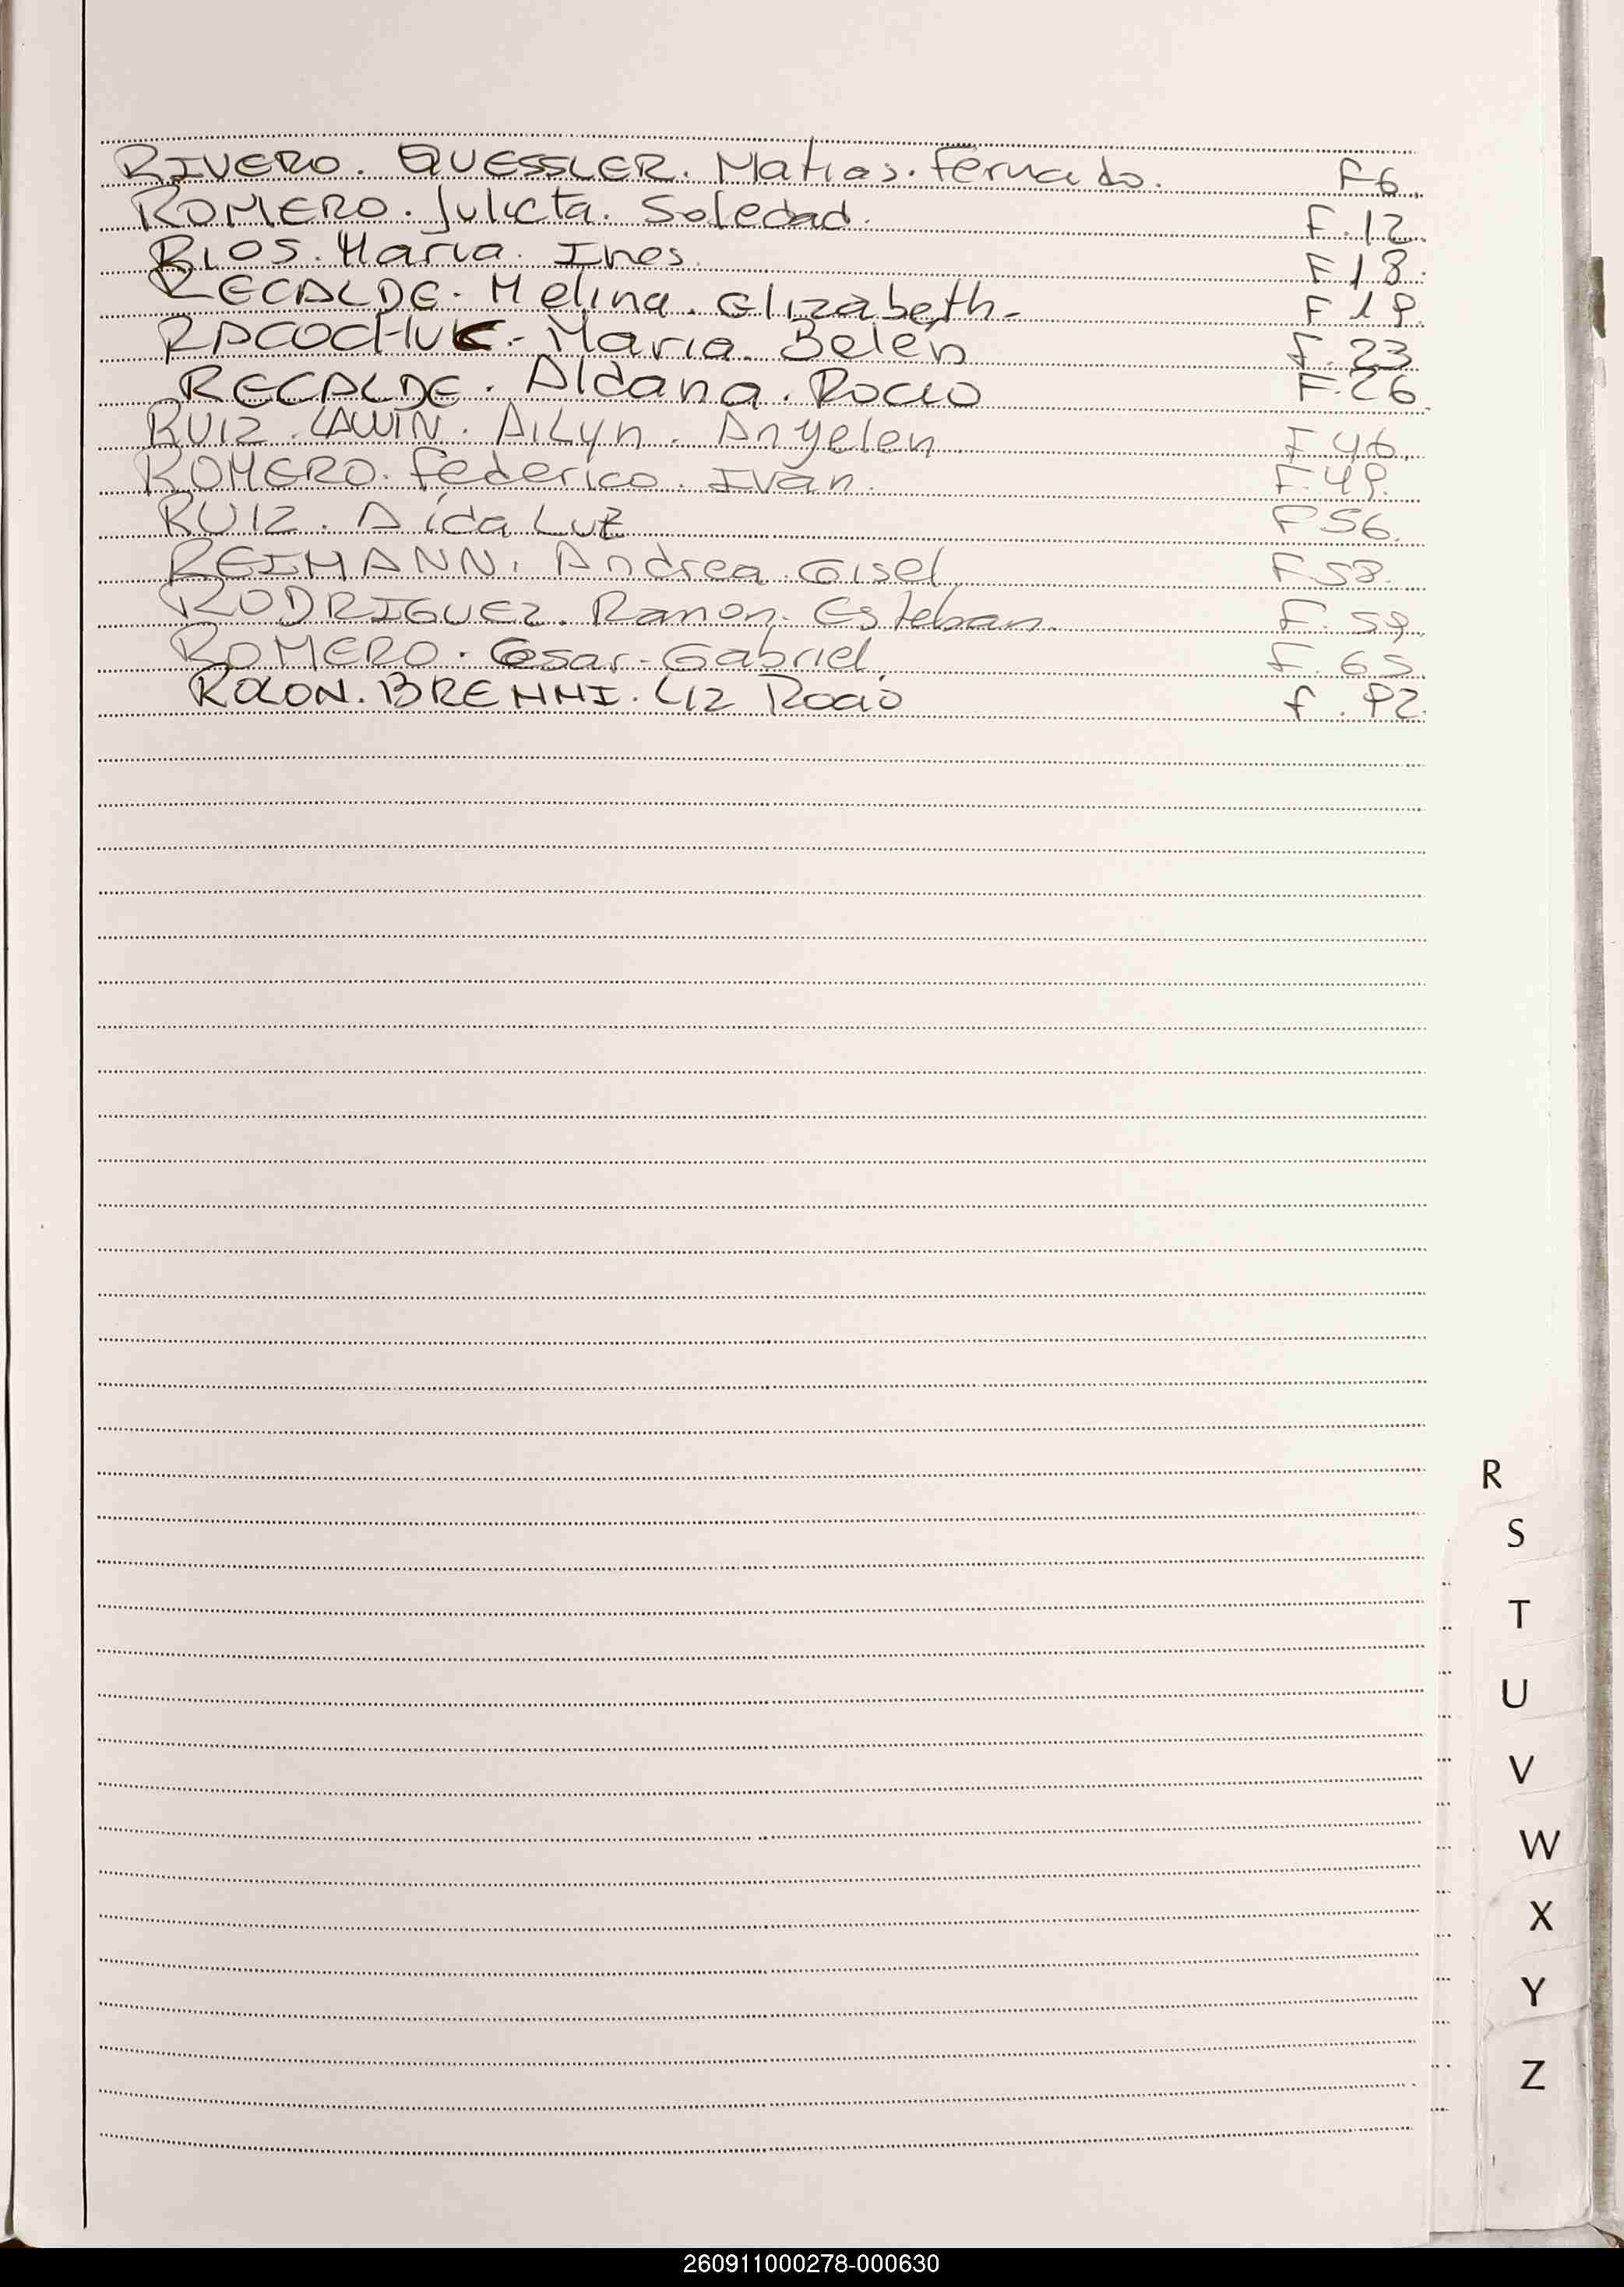 RIVERO. QUESSLER. Matias. Fernado. F6.
ROMERO. Julieta. Soledad. F.12.
RIOS. Maria. Ines. F18.
RECALDE. Melina. Elizabeth. F19.
RACOCHUK. Maria. Belén F.23
RECALDE. Aldana. Rocio F.26
RUIZ. LAWIN. AiLyn. Anyelen. F.46.
ROMERO. Federico. Ivan. F.49.
RUIZ. Aida Luz F56.
REIMANN. Andrea. Gisel. F58.
RODRIGUEZ. Ramon. Esteban. F.59.
ROMERO. Cesar. Gabriel. F.65.
ROLON. BREMMI. Liz Rocio f.92.
R
S
T
U
V
W
X
Y
Z
260911000278-000630